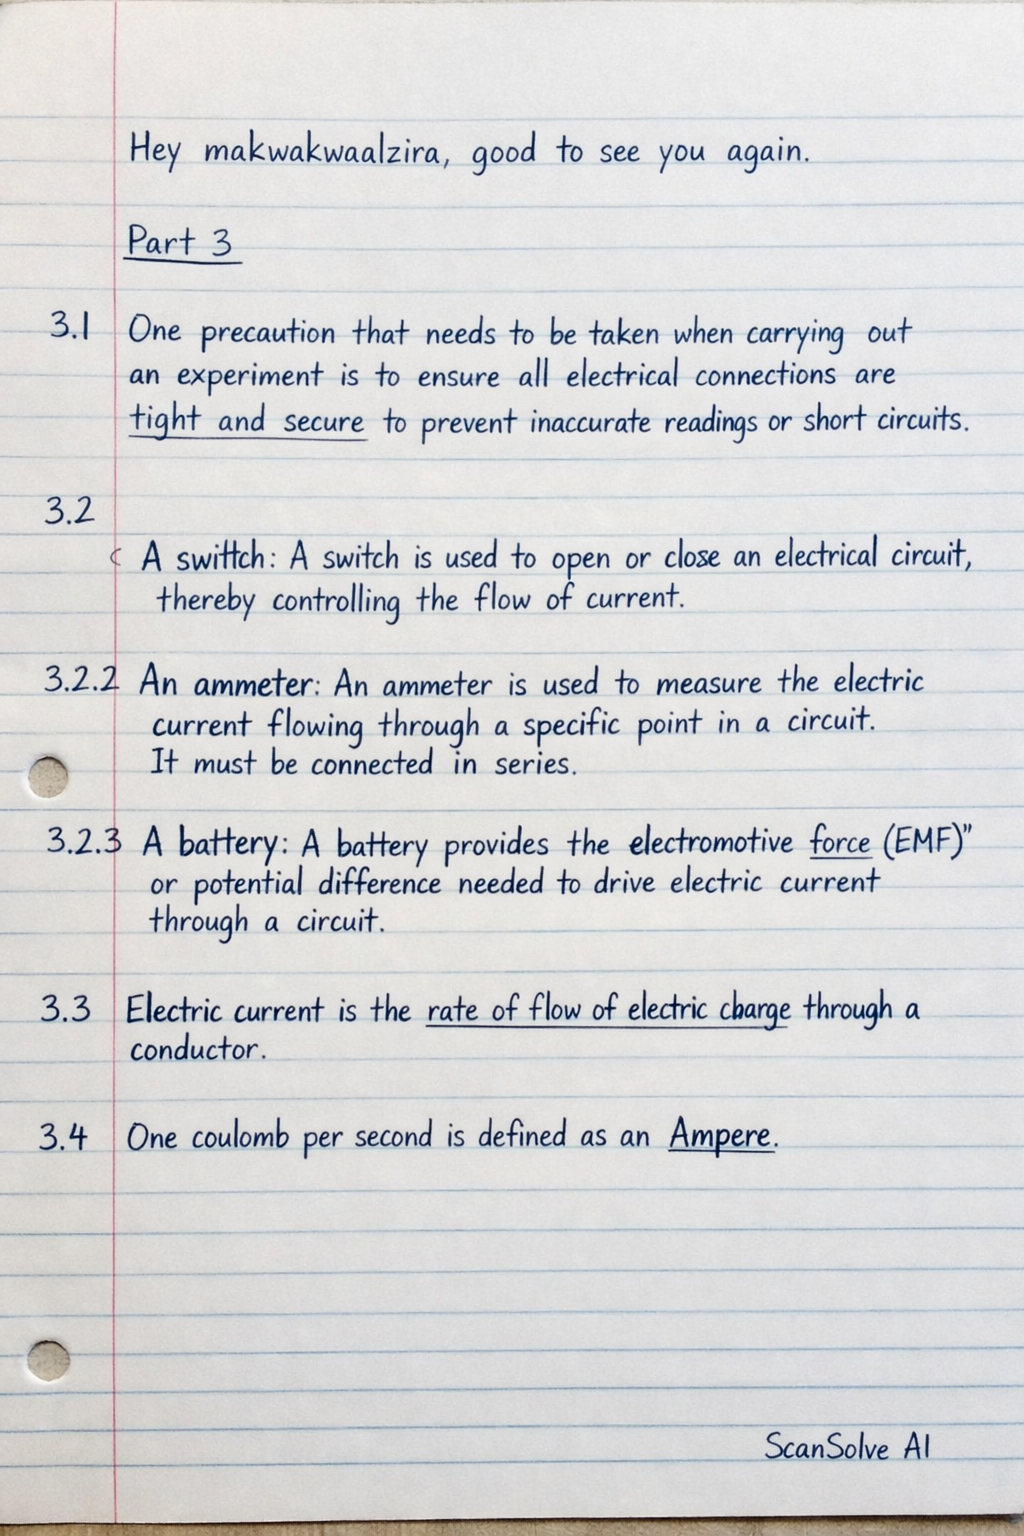 Hey makwakwaalzira, good to see you again.
Part 3
3.1 One precaution that needs to be taken when carrying out
an experiment is to ensure all electrical connections are
tight and secure to prevent inaccurate readings or short circuits.
3.2
A swittch: A switch is used to open or close an electrical circuit,
thereby controlling the flow of current.
3.2.2 An ammeter: An ammeter is used to measure the electric
current flowing through a specific point in a circuit.
It must be connected in series.
3.2.3 A battery: A battery provides the electromotive force (EMF)"
or potential difference needed to drive electric current
through a circuit.
3.3 Electric current is the rate of flow of electric charge through a
conductor.
3.4 One coulomb per second is defined as an Ampere.
ScanSolve AI